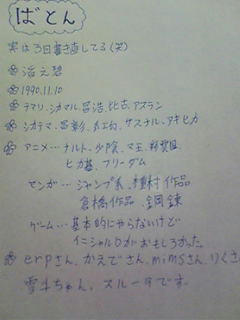 ばとん
実は3日書き直してる(笑)
1990.11.10
テマリ、シカマル、昌浩、比古、アスラン
シカテマ、昌彰、
アニメ…ナルト、少陰、マ王、
ヒカ碁、フリーダム
マンガ…ジャンプ系、種村作品
倉橋作品、鋼錬
ゲーム…基本的にやらないけど
イニシャルDがおもしろかった
erpさん、かえでさん、mimsさん、りくさ
雪斗ちゃん、スルーダです。